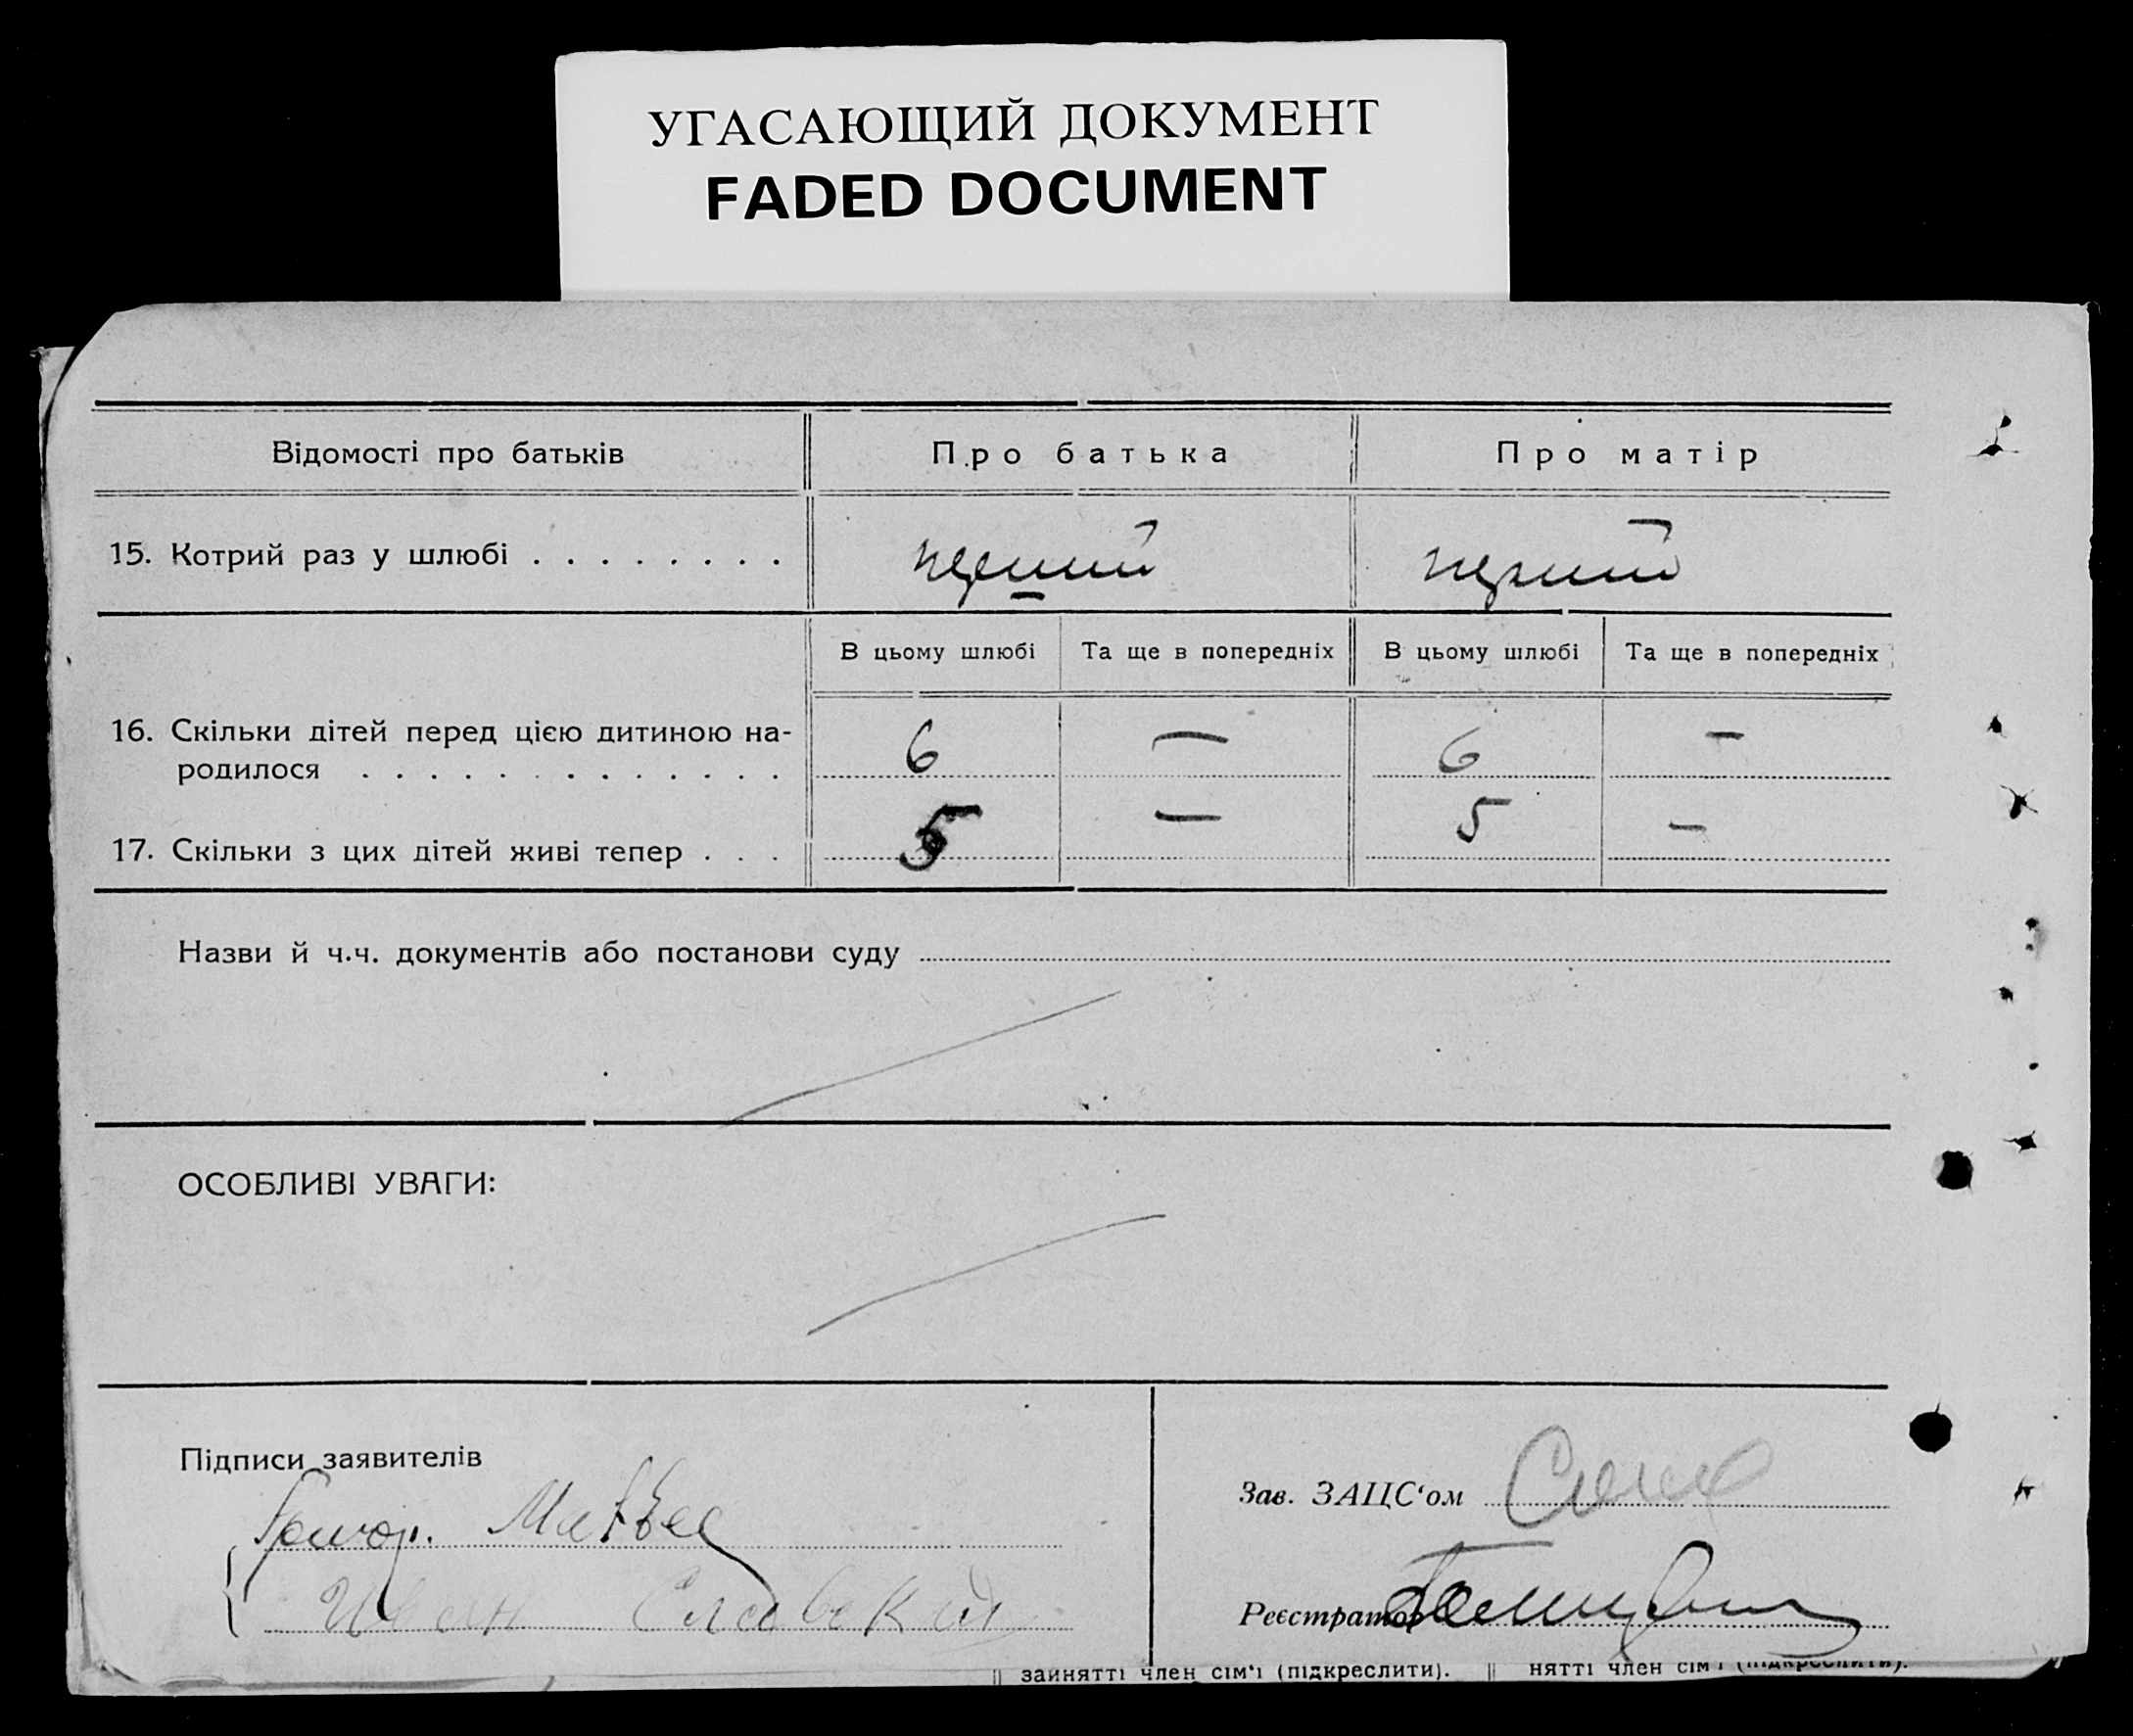 УГАСАЮЩИЙ ДОКУМЕНТ
FADED DOCUMENT
Відомості про батьків Про батька Про матір
15. Котрий раз у шлюбі . . . . . . . . перший перший
В цьому шлюбі Та ще в попередніх В цьому шлюбі Та ще в попередніх
16. Скільки дітей перед цією дитиною на-
родилося . . . . . . . . . . . . . 6 — 6 —
17. Скільки з цих дітей живі тепер . . . 5 — 5 —
Назви й ч.ч. документів або постанови суду
ОСОБЛИВІ УВАГИ:
Підписи заявителів
Зав. ЗАЦС‘ом
Григор. Матвее
Реєстратор
Иван
зайнятті член сім‘ї (підкреслити). нятті член сім‘ї (підкреслити).